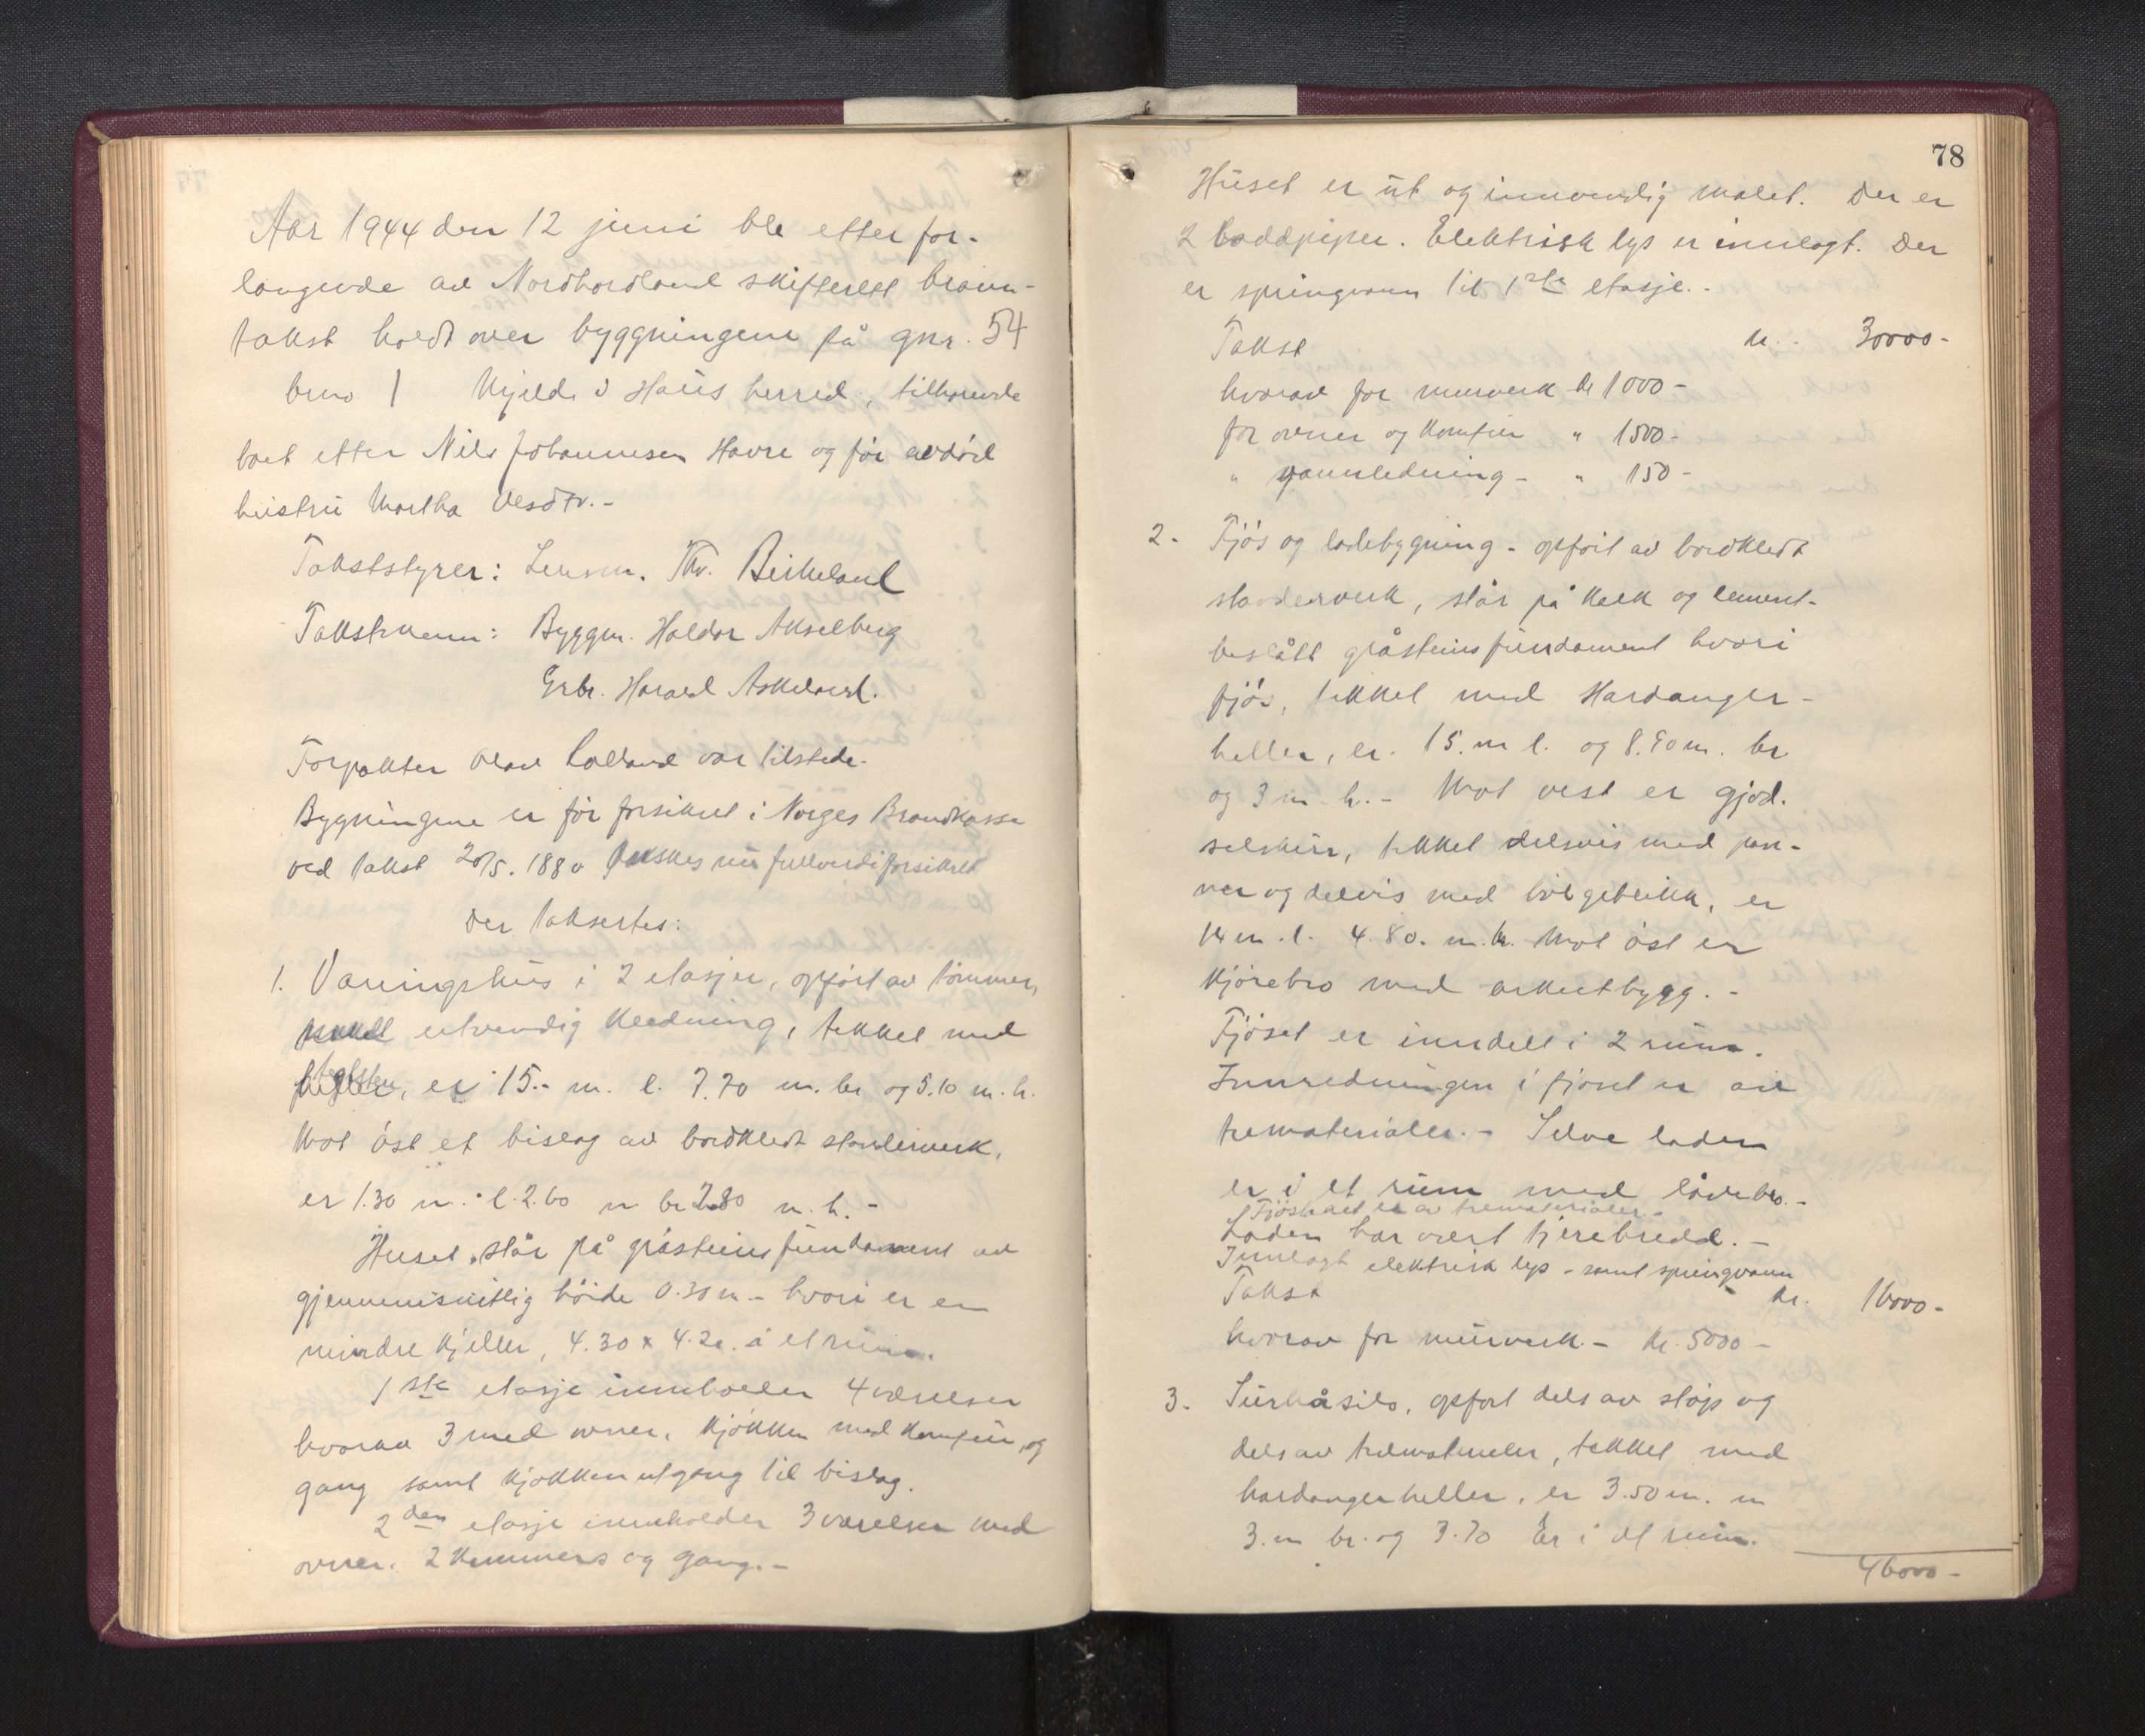 Aar 1944 den 12 juni ble etter for-
langende av Nordhordland skifterett brann-
takst holdt over byggningene på gnr. 54
brno 1 Mjelde i Haus herred, tilhørende
boet etter Nils Johannesen Havre og før avdød
hustru Martha Olesdtr.-
Takststyrer: Lensm. Thv. Birkeland
Takstmenn: Byggm. Haldor Akselberg
Grbr. Harald Askeland.
Forpakter Olav Lolland var tilstede.
Bygningene er før forsikret i Norges Brandkasse
ved takst 20/5. 1880 Ønskes nu fullverdiforsikret
Der taksertes:
1. Vaaningshus i 2 etasjer, opført av tømmer,
utvendig kledning, tekket med
teglsten, er 15.- m. l. 7.70 m. br og 5.10 m. h.
Mot øst et bislag av bordkledt standerverk,
er 1.30 m. l. 2.60 m br 2.80 m. h.-
Huset står på gråsteins fundament av
gjennemsnitlig høide 0.30 m - hvori er en
mindre kjeller, 4.30 x 4.20. à et rum.
1ste etasje inneholder 4 værelser
hvorav 3 med ovner, kjøkken med komfur, og
gang samt kjøkkenutgang til bislag.
2den etasje inneholder 3 værelser med
ovner. 2 kammers og gang.-
78
Huset er ut og innvendig malet. Der er
2 loddpiper. Elektrisk lys er innlagt. Der
er springvann til 1ste etasje.-
Takst kr. 30000-
hvorav for murverk kr 1000-
for ovner og komfur " 1500-
" vannledning - " 150-
2. Fjøs og ladebygning - opført av bordkledt
standerverk, står på kalk og cement-
beslått gråsteinsfundament hvori
fjøs, tekket med Hardanger-
heller, er. 15. m l. og 8.90 m. br
og 3 m. h.- Mot vest er gjød-
selskur, tekket delsvis med pan-
ner og delvis med bølgeblikk, er
14 m. l. 4.80. m. br. Mot øst er
kjørebro med arkutbygg.-
Fjøset er inndelt i 2 rum.
Innredningen i fjøset er av
trematerialer.- Selve laden
er i et rum med låvebro.-
Fjøstaket er av trematerialer.-
Laden har vært tjærebredd.-
Innlagt elektrisk lys - samt springvann
Takst kr. 16000-
hvorav for murverk.- kr. 5000-
3. Surhåsilo, opført dels av støp og
dels av trematerialer, tekket med
hardangerheller, er 3.50 m. m
3. m br. og 3.70 Er i et rum.
46000-